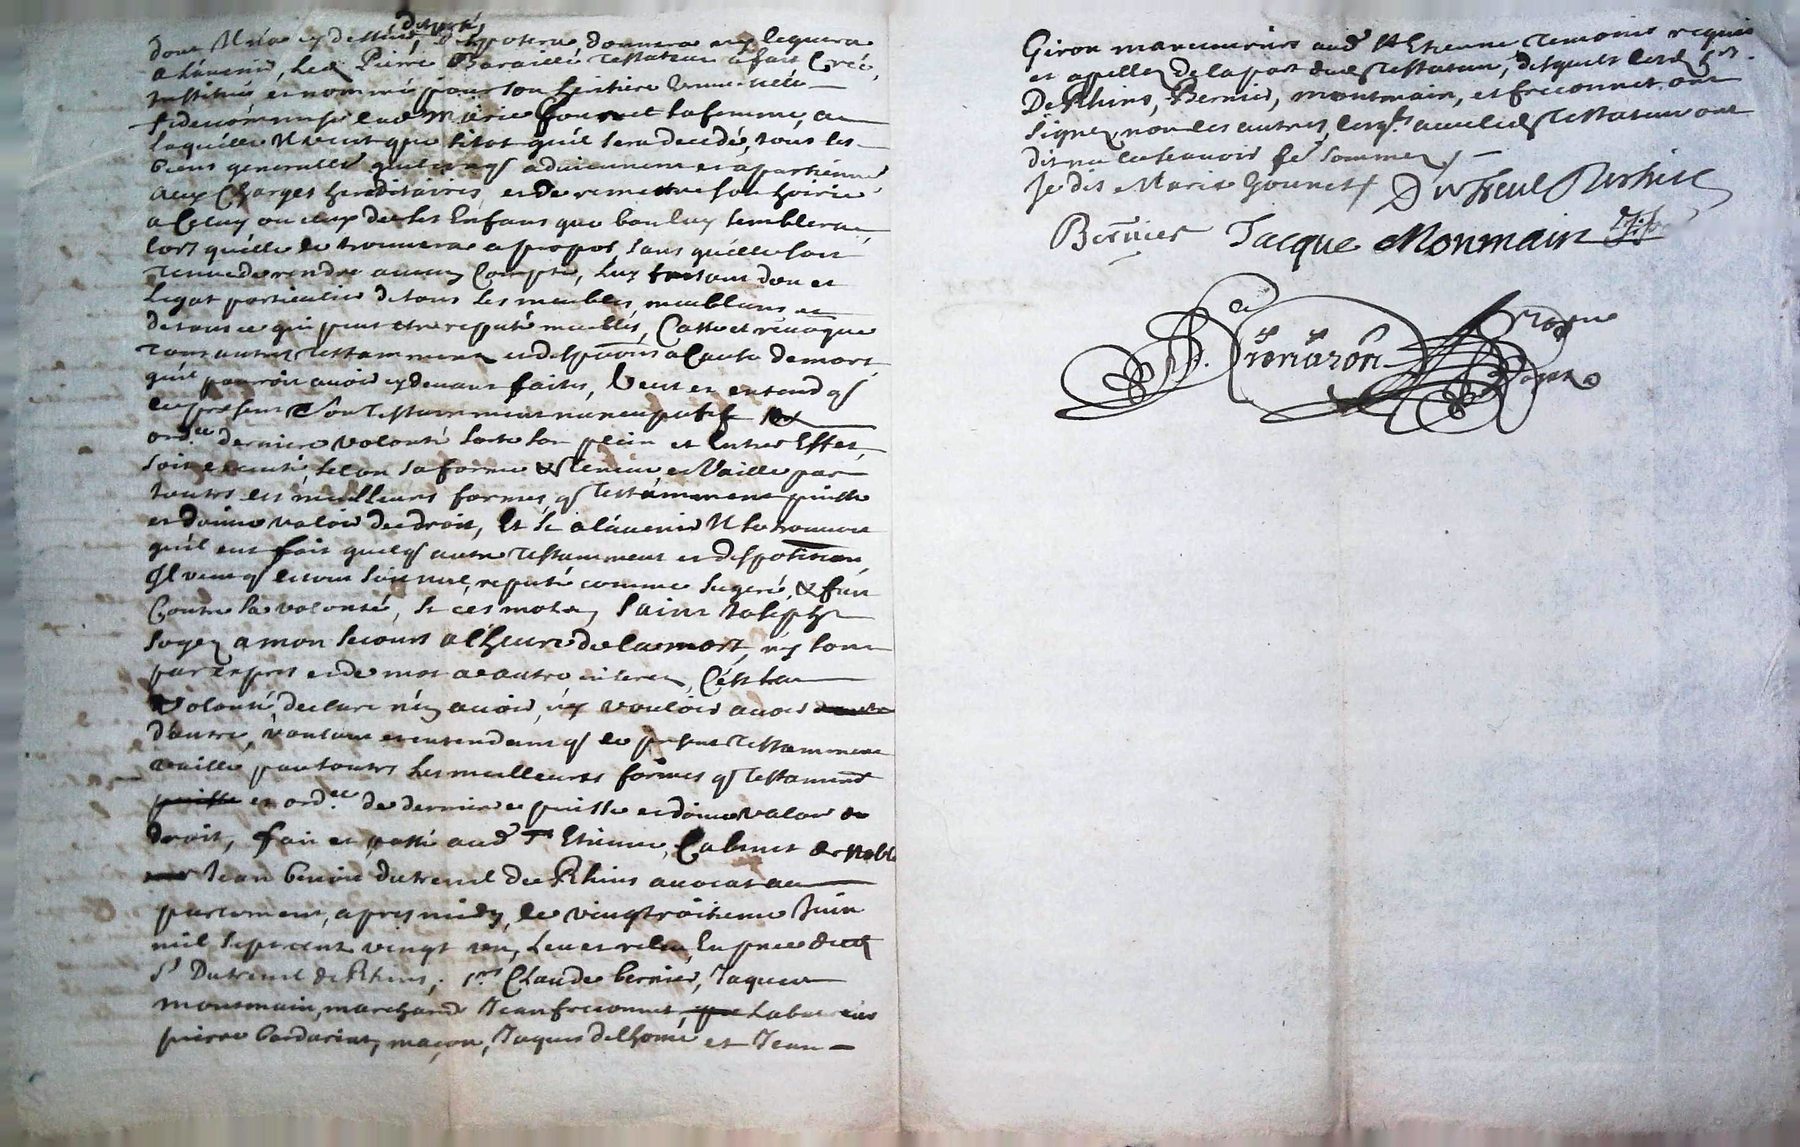 dont Il n'a cy dessus disposé, disposera, donnera ny leguera
a l'avenir, Led. Pierre testateur a fait Creé,
Institué et nommé pour son heritiere universelle
fideicommise lad. Marie sa femme, a
laquelle Il veut que sitot qu'il sera decedé, tous les
biens generalle quelconqs adviennent et apartiennent
aux Charges hereditaires et de remettre son hoirie
a Celuy ou ceux de ses Enfans que bon luy semblera,
lors qu'elle le trouvera a propos sans qu'elle soit
tenue de rendre aucun Compte, luy faisant don et
legat particulier de tous ses meubles meublans et
de tous ce qui peut etre reputé meubles, Casse et revoque
tous autres testamment et disp.ons a Cause de mort
qu'il pourroit avoir cy devant faites, Veut et entend q̃
le present son testamment nuncupatif et
ord.ce derniere volonté sorte son plein et Entier Effet,
soit executé selon sa forme & teneur et Vaille par
toutes les meilleures formes, q̃ testamment puisse
et doive valoir de droit, Et si a l'avenir Il se trouvoit
qu'il eut fait quelq̃ autre testamment et disposition,
Il veut q̃ le tout soit nul, reputé comme sugeré, & fait
Contre sa volonté, si ces mots, Saint Joseph
soyez a mon secours a l'heure de la mort, n'y sont
par exprés et de mot a autre inserez, C'est sa
Volonté, declare n'en avoir, ny vouloir avoir
d'autre, voulant et entendant q̃ le present testamment
vaille par toutes les meilleures formes q̃ testament
puisse et ord.ce de derniere puisse et doive valoir de
droit, fait et passé aud. St Etienne, Cabinet de Noble
Jean benoit dutreuil de Rhins avocat au
parlement, apres midy, le vingt troisieme Juin
mil sept cent vingt un, Leu et releu, En pnce dud.
Sr Dutreuil de Rhins, Srs Claude bernier, Jaques
montmain, marchand Jean freconnet,
pierre, maçon, Jaques delhomé et Jean
Giron manouvriers aud. St Etienne temoins requis
et apellez de la part dud. testateur, desquels lesd. Srs
De Rhins, Bernier, montmain, et freconnet ont
signez, non les autres, lesqls avec led. testateur ont
dit ne le scavoir de ce sommez
Je dis Marie
Dutreul Derhins
Bernier Jacque Monmain